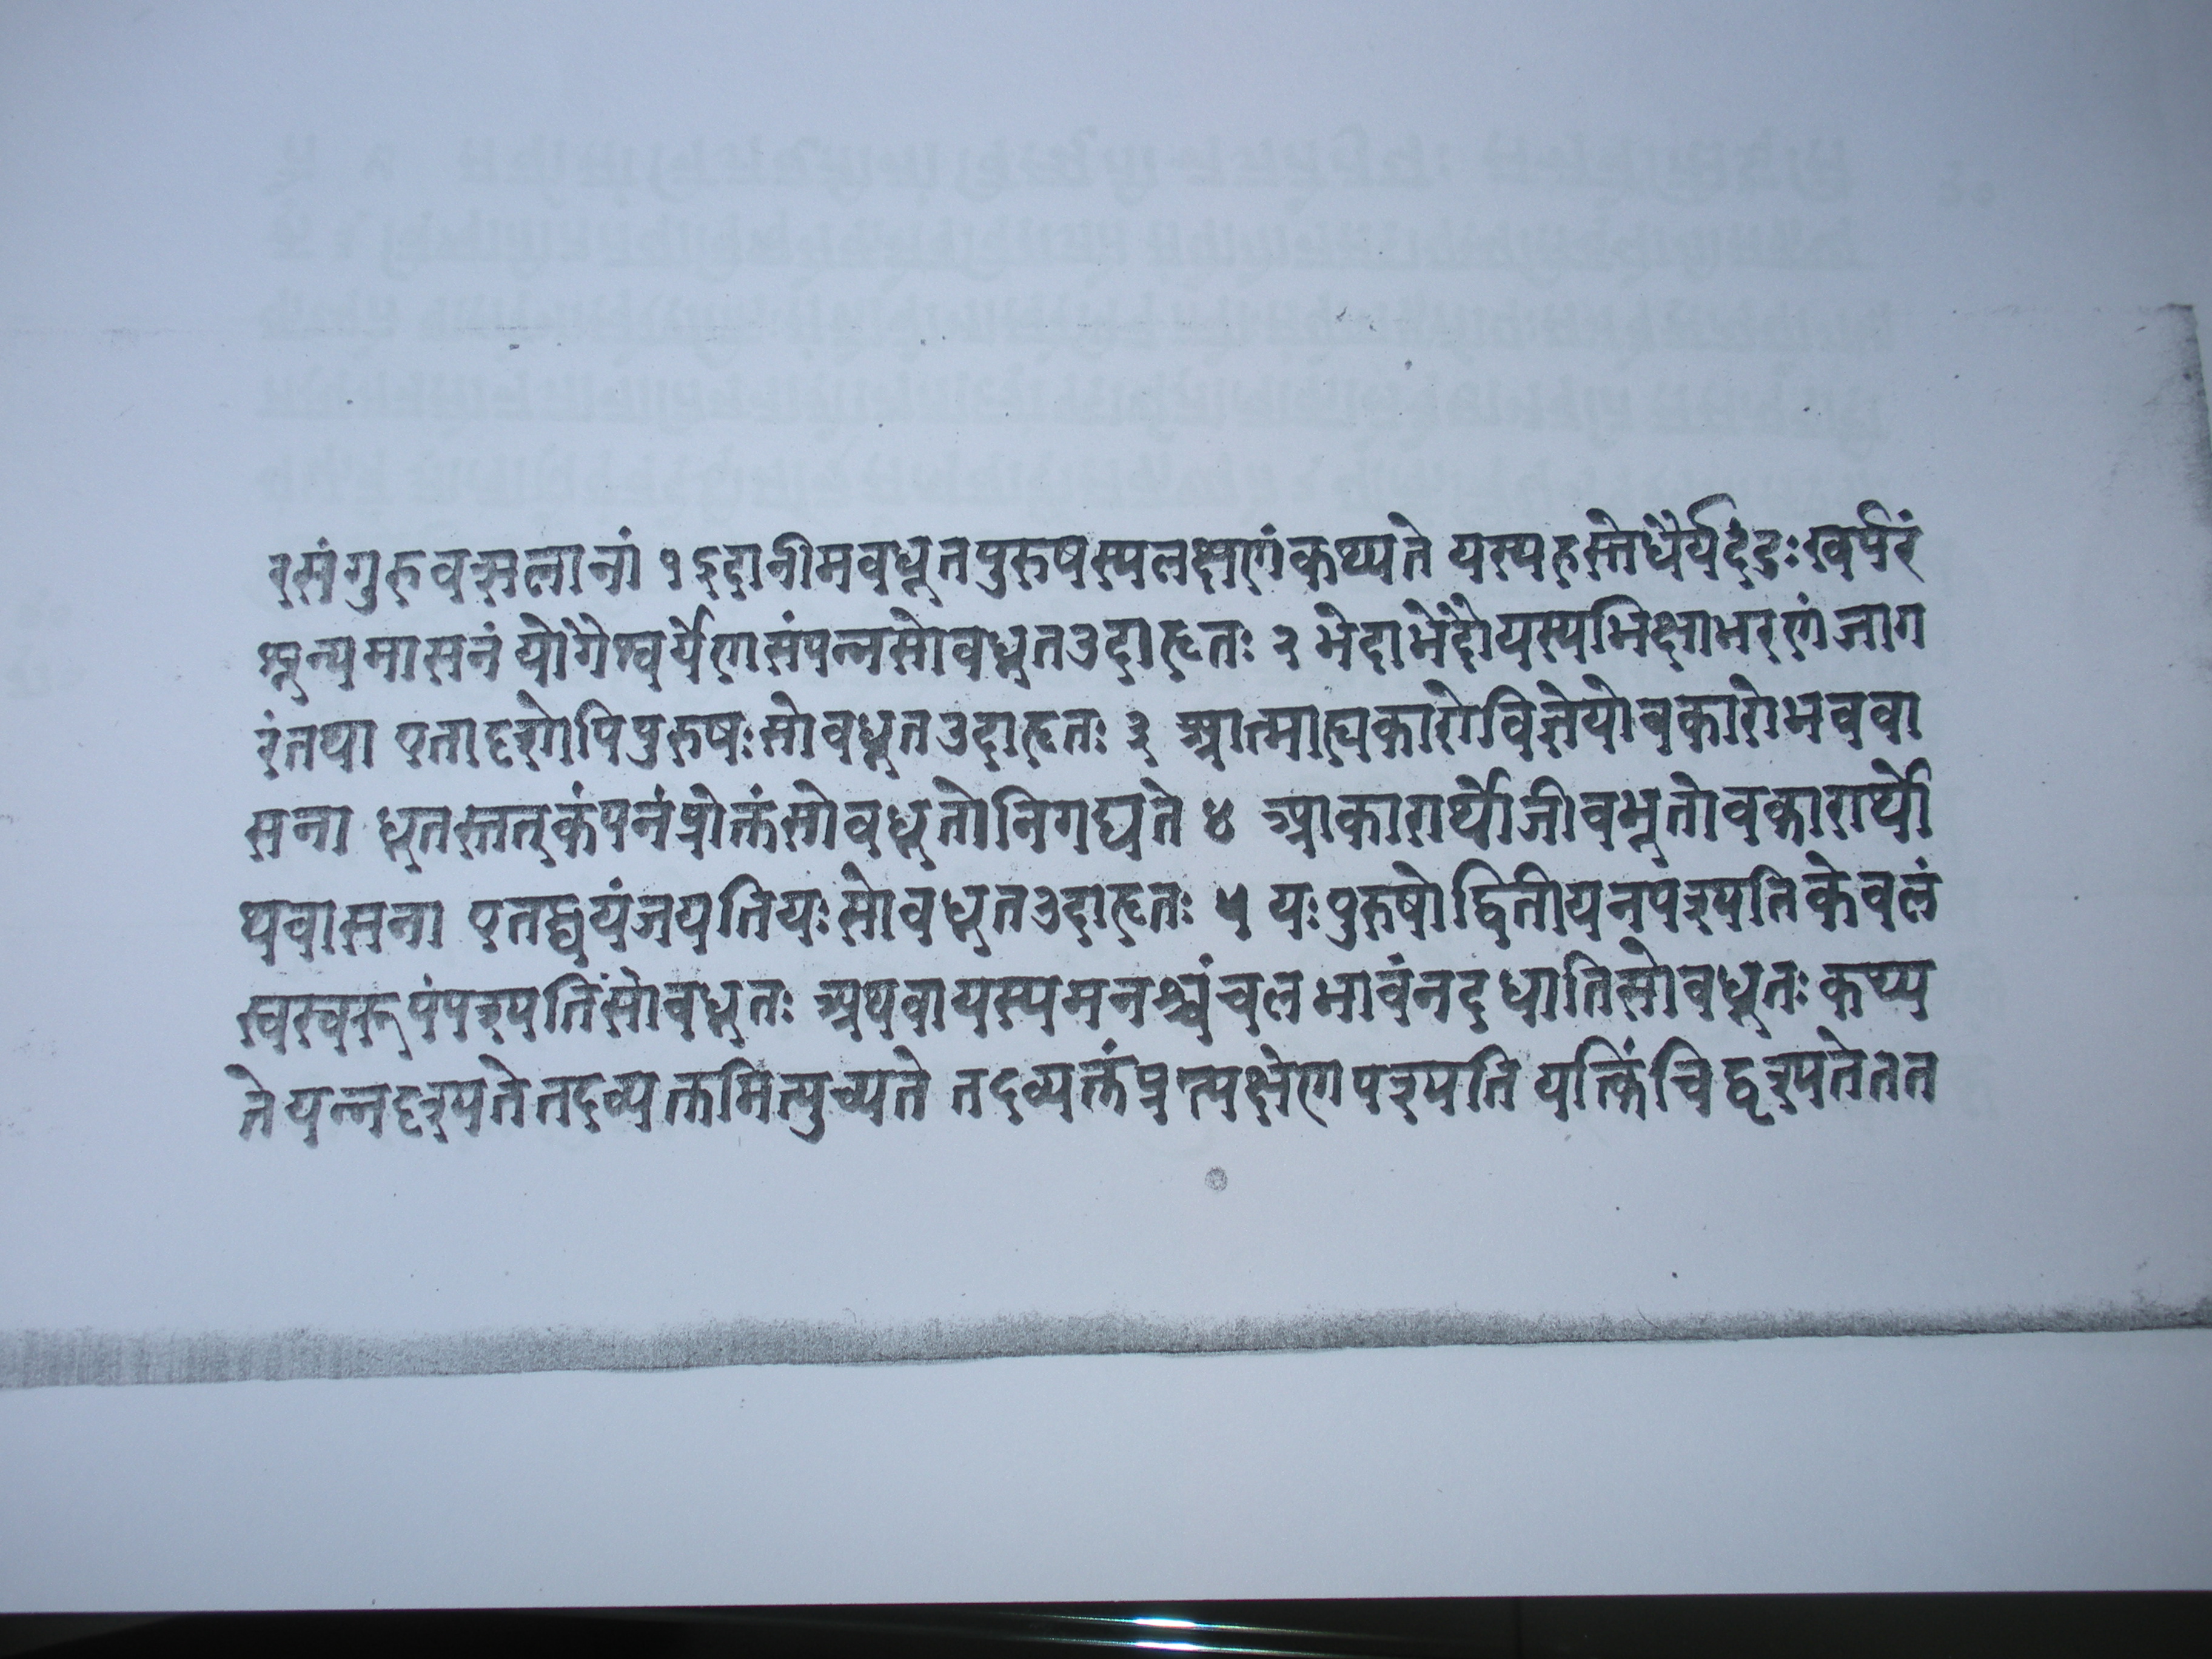 रसंगुरुवत्सलानां १ इदानीमवधूतपुरुषस्यलक्षणंकथ्यते यस्यहस्तेधैर्यदंडः खर्परं
शून्यमासनं योगैश्वर्येणसंपन्नसोवधूतउदाहृतः २ भेदाभेदौयस्यभिक्षाभरणंजाग
रंतथा एतादृशोपिपुरुषःसोवधूतउदाहृतः ३ आत्माह्यकारोविज्ञेयोवकारोभववा
सना धूतस्तत्कंपनंप्रोक्तंसोवधूतोनिगद्यते ४ आकारार्थोजीवभूतोवकारार्थो
थवासना एतद्वयंजयतियःसोवधूतउदाहृतः ५ यःपुरुषोद्वितीयनपश्यतिकेवलं
स्वस्वरूपंपश्यतिंसोवधूतः अथवायस्यमनश्चंचलभावंनदधातिसोवधूतःकथ्य
तेयन्नदृश्यतेतदव्यक्तमित्युच्यते तदव्यक्तंप्रत्यक्षेणपश्यति यत्किंचिद्दृश्यतेतत